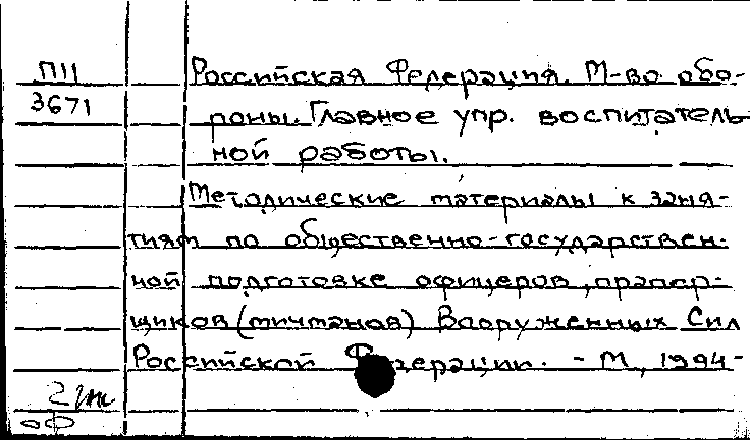 П11
3671
Российская Федерация. М-во обо-
роны. Главное упр. воспитатель-
ной работы.
Методические материалы к заня-
тиям по общественно-государствен-
ной подготовке офицеров, прапор-
щиков (мичманов) Вооруженных Сил
Российской Федерации. - М., 1994-
2